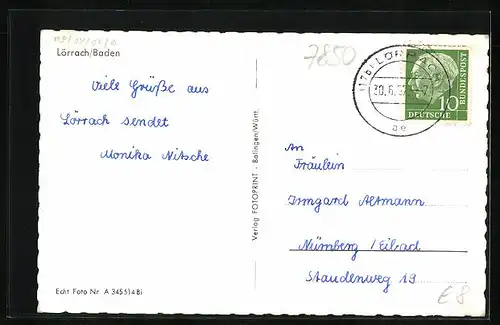 7850
Lörrach/Baden
Viele Grüße aus
Lörrach sendet
Monika Nitsche
Echt Foto Nr. A 345514 Bi
Verlag FOTOPRINT - Balingen/Württ.
(17b) LÖRRACH
30.6.57
ae
10
DEUTSCHE
BUNDESPOST
An
Fräulein
Irmgard Altmann
Nürnberg / Eibad
Staudenweg 19
E8